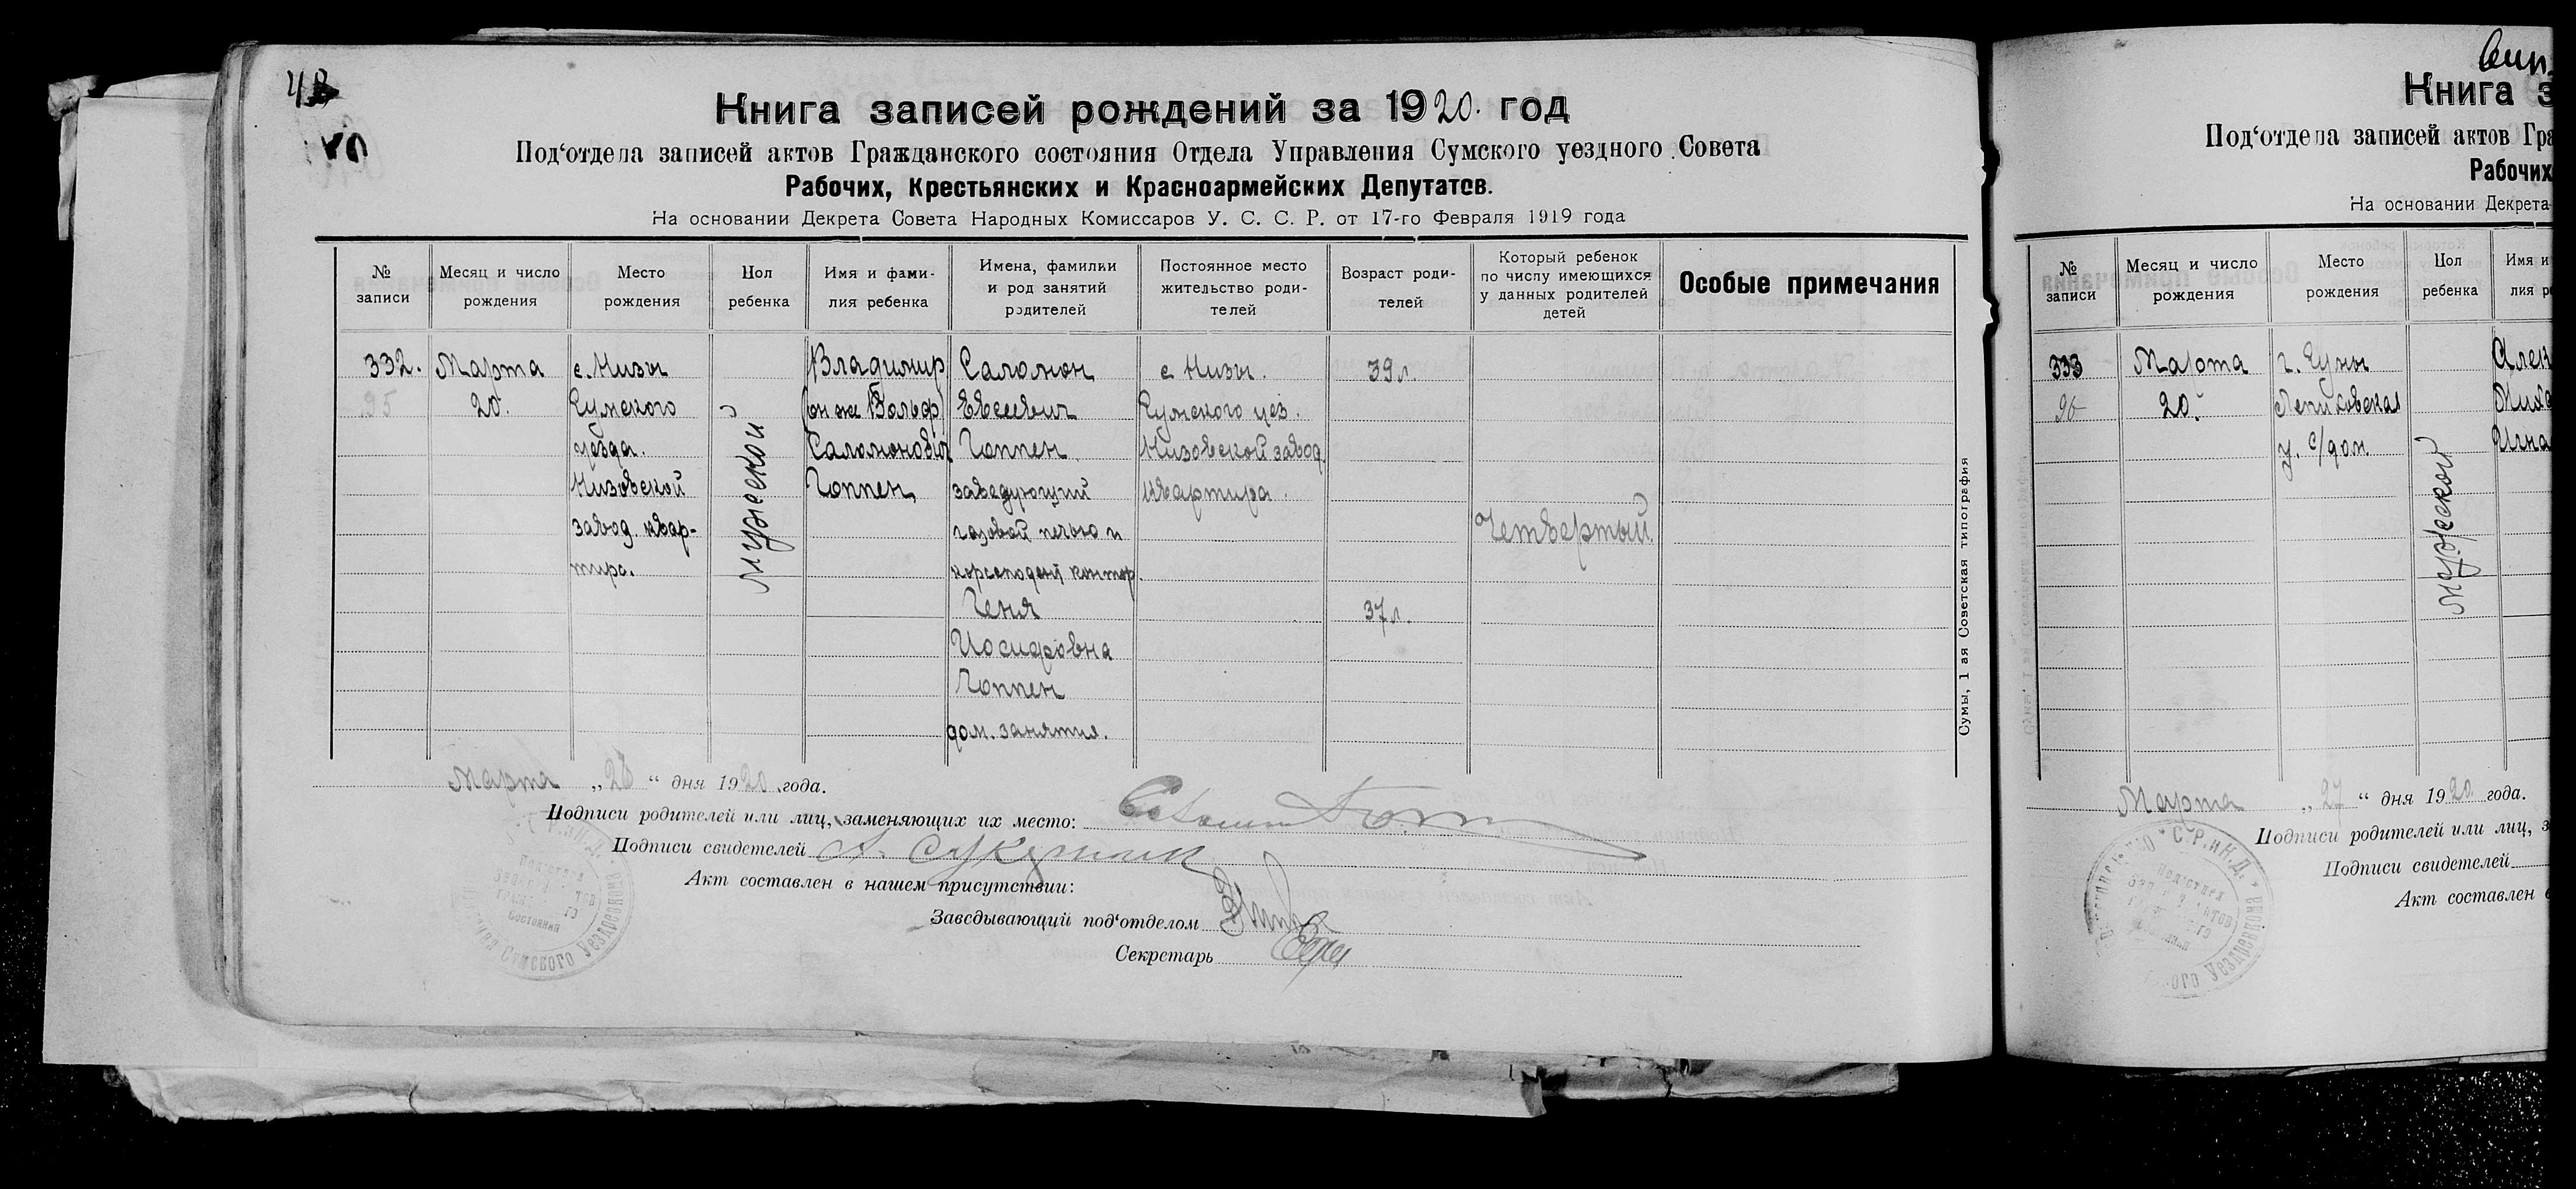 48
Книга записей рождений за 1920. год
Под‘отдела записей актов Гражданского состояния Отдела Управления Сумского уездного Совета
Рабочих, Крестьянских и Красноармейских Депутатов.
На основании Декрета Совета Народных Комиссаров У. С. С. Р. от 17-го Февраля 1919 года
№ записи
Месяц и число рождения
Место рождения
Пол ребенка
Имя и фамилия ребенка
Имена, фамилии и род занятий родителей
Постоянное место жительство родителей
Возраст родителей
Который ребенок по числу имеющихся у данных родителей детей
Особые примечания
332.
95
Марта
20.
с. Низы
Сумского
уезда.
Низовской
завод. квар-
тира.
мужской
Владимир
(он же Вольф)
Саломонович
Гоппен
Саломон
Евсеевич
Гоппен
заведующий
газовой печью и
корсподент контор.
Геня
Иосифовна
Гоппен
дом. занятия.
с Низы.
Сумского уез.
Низовской завод
квартира.
39 л.
37 л.
Четвертый.
Сумы, 1 ая Советская типография
Марта „26“ дня 1920 года.
Подписи родителей или лиц, заменяющих их место:
Подписи свидетелей
Акт составлен в нашем присутствии:
Заведывающий под‘отделом
Секретарь
Книга з
Под‘отдела записей актов Гра
Рабочих
На основании Декрета
№ записи
Месяц и число рождения
Место рождения
Пол ребенка
Имя и
лия р
333
96
Марта
20.
г. Сумы
у. с/дом.
мужской
Алек
Миха
Игна
Марта „27“ дня 1920 года.
Подписи родителей или лиц, з
Подписи свидетелей
Акт составлен в